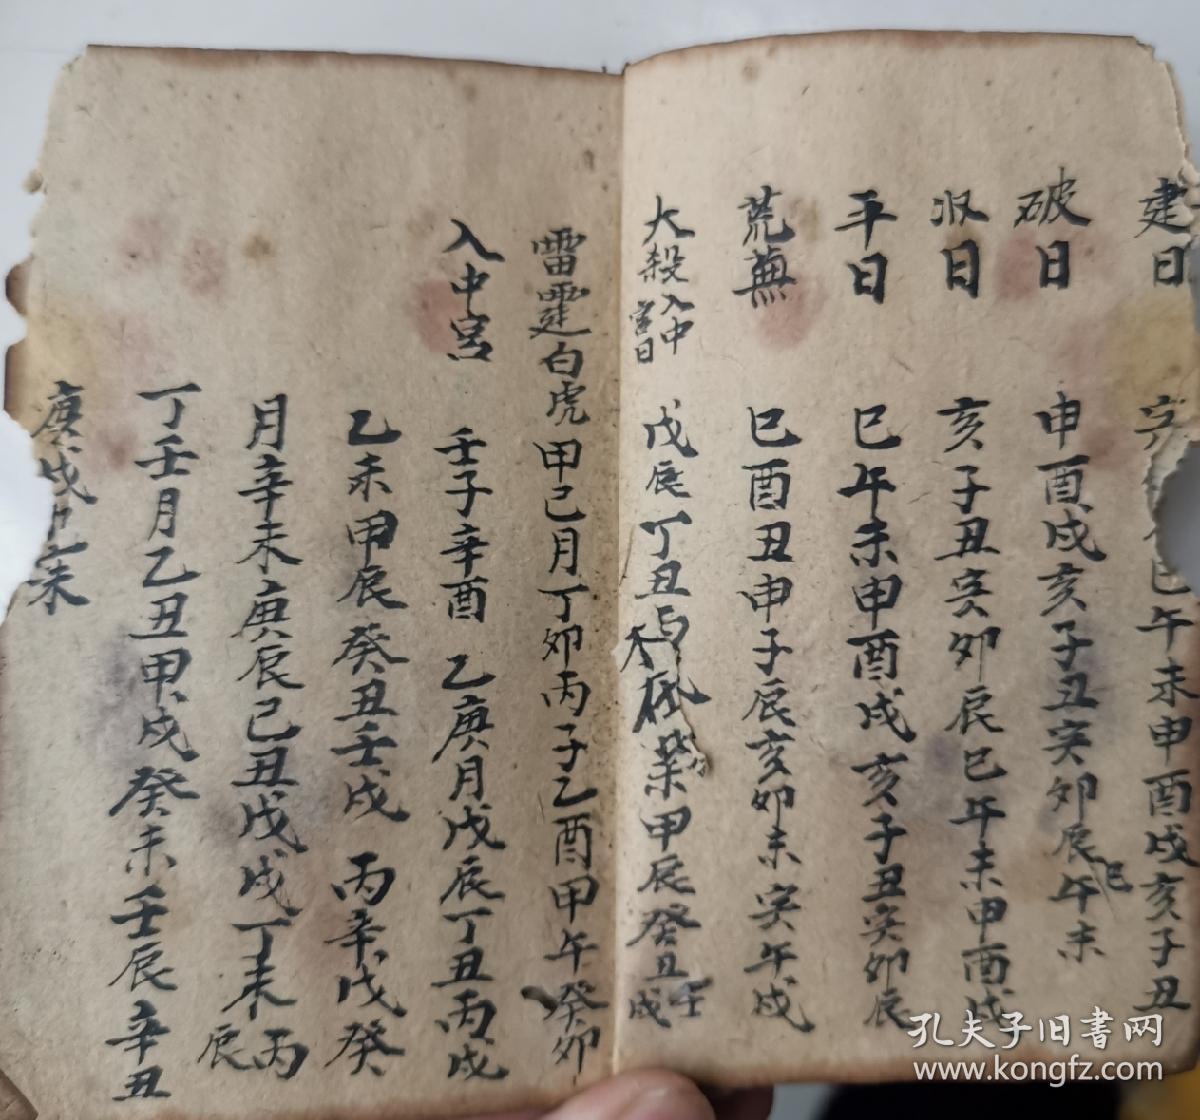 建日 寅 巳午未申酉戌亥子丑
破日 申酉戌亥子丑寅卯辰巳午未
收日 亥子丑寅卯辰巳午未申酉戌
平日 巳午未申酉戌亥子丑寅卯辰
荒蕪 巳酉丑申子辰亥卯未寅午戌
大殺入中宮日 戊辰丁丑 甲辰癸丑壬戌
雷霆白虎 甲己月丁卯丙子乙酉甲午癸卯
入中宮 壬子辛酉 乙庚月戊辰丁丑丙戌
乙未甲辰癸丑壬戌 丙辛戊癸
月辛未庚辰己丑戊戌丁未丙辰
丁壬月乙丑甲戌癸未壬辰辛丑
庚戌 未
孔夫子旧书网
www.kongfz.com